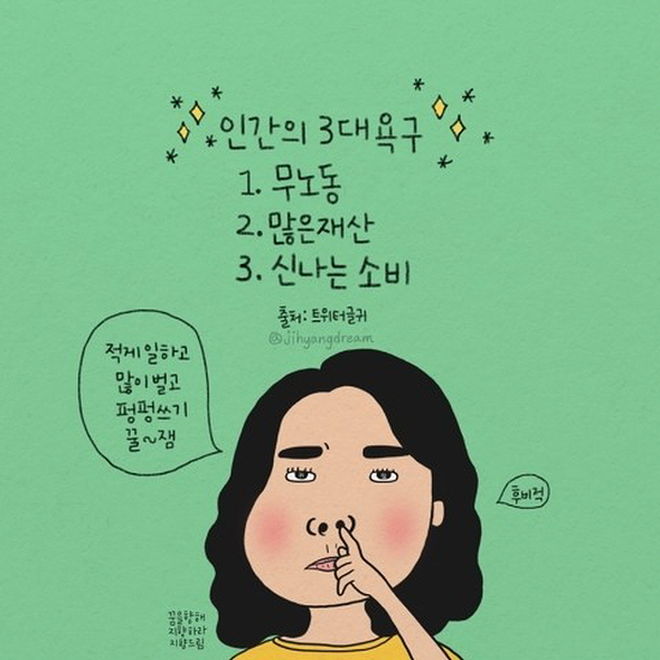 인간의 3대욕구
1. 무노동
2. 많은재산
3. 신나는 소비
출처: 트위터글귀
@jihyangdream
적게일하고
많이벌고
펑펑쓰기
꿀~잼
후비적
꿈을향해
지향하라
지향드림